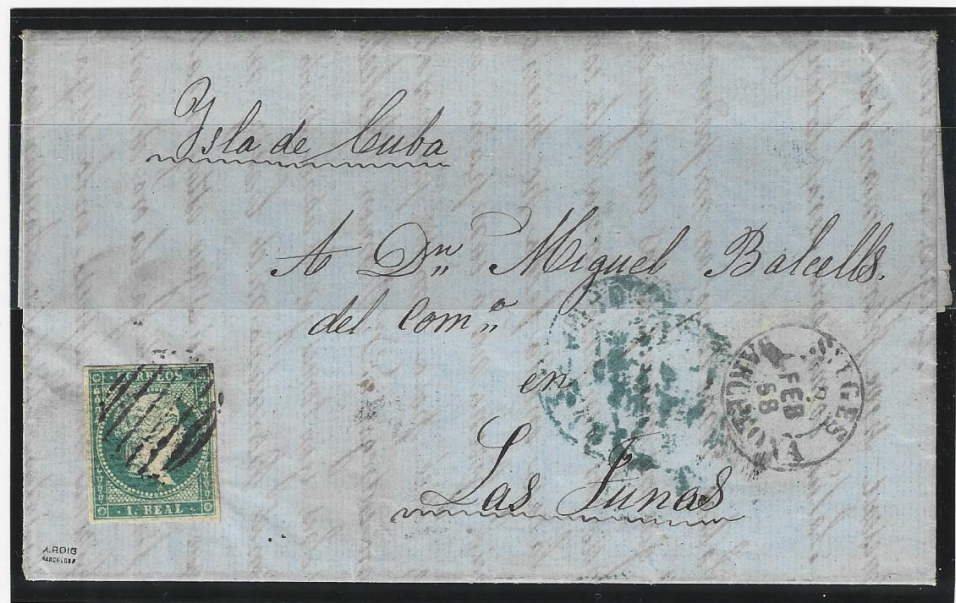 Ysla de Cuba
A Dn. Miguel Balcells.
del Como.
en
Las Tunas
CORREOS
1. REAL
SITGES
FEB
58
BARCELONA
A. ROIG
BARCELONA